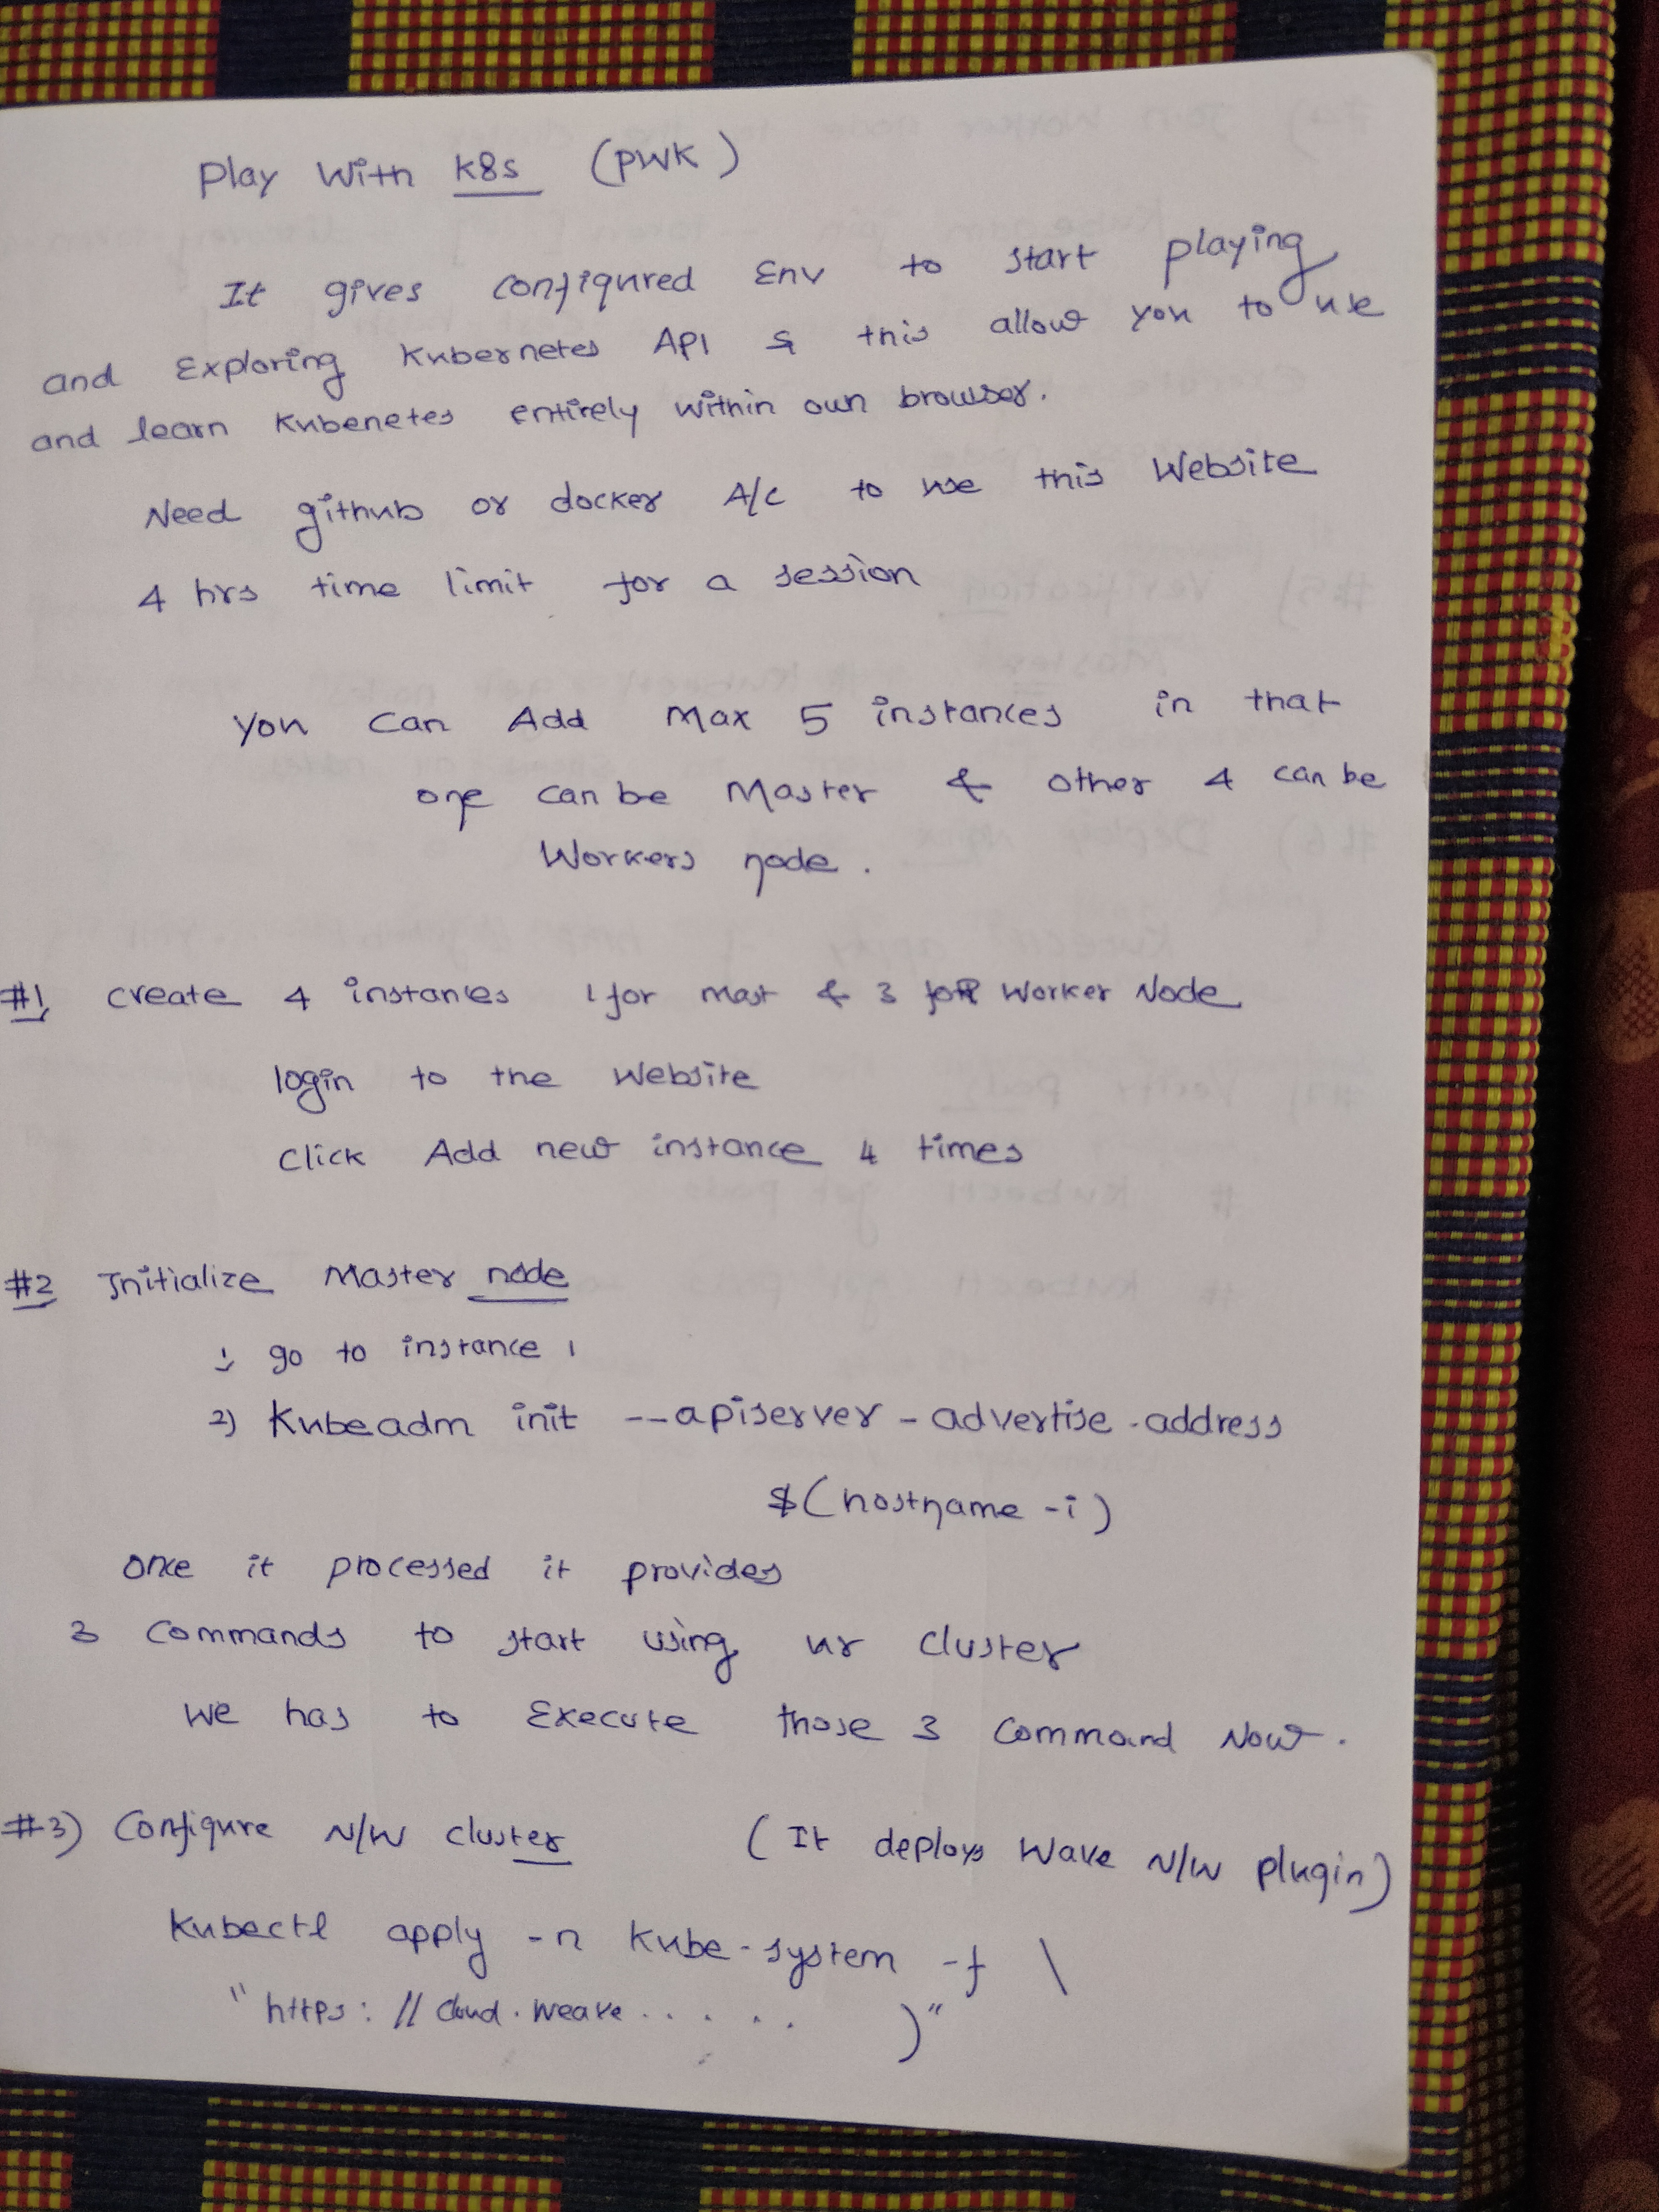 Play With k8s (PWK)
It gives configured Env to start playing
and Exploring Kubernetes API & this allow you to use
and learn Kubenetes entirely within own browser.
Need github or docker A/c to use this Website
4 hrs time limit for a session
You can Add Max 5 instances in that
one can be Master & other 4 can be
Workers node.
#1, create 4 instances 1 for mast & 3 for Worker Node
login to the Website
Click Add new instance 4 times
#2 Initialize Master node
1) go to instance 1
2) Kubeadm init --apiserver-advertise-address
$(hostname -i)
Once it processed it provides
3 Commands to start using ur cluster
We has to Execute those 3 Command Now.
#3) Configure N/W cluster (It deploys Wave N/W plugin)
Kubectl apply -n kube-system -f \
"https://cloud.weave..... )"